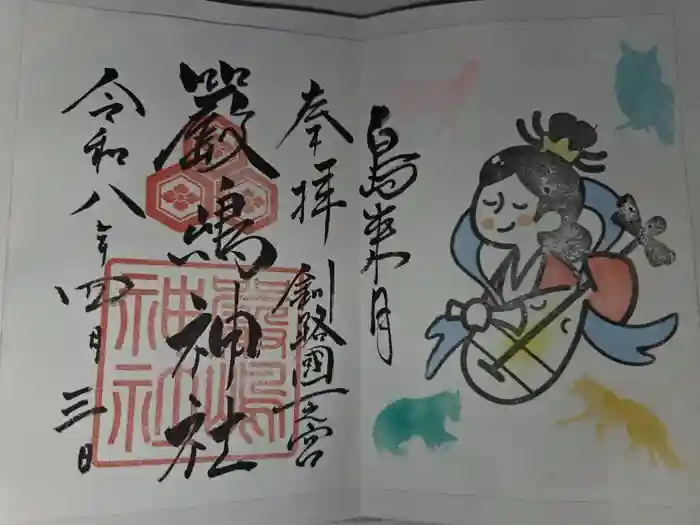 鳥来月
奉拝
釧路國一之宮
嚴嶋神社
令和八年四月三日
嚴嶋
神社